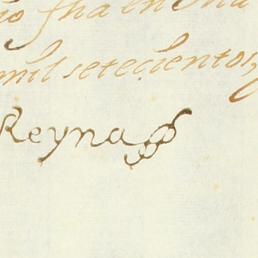 fha en
mil setecientos
Reyna